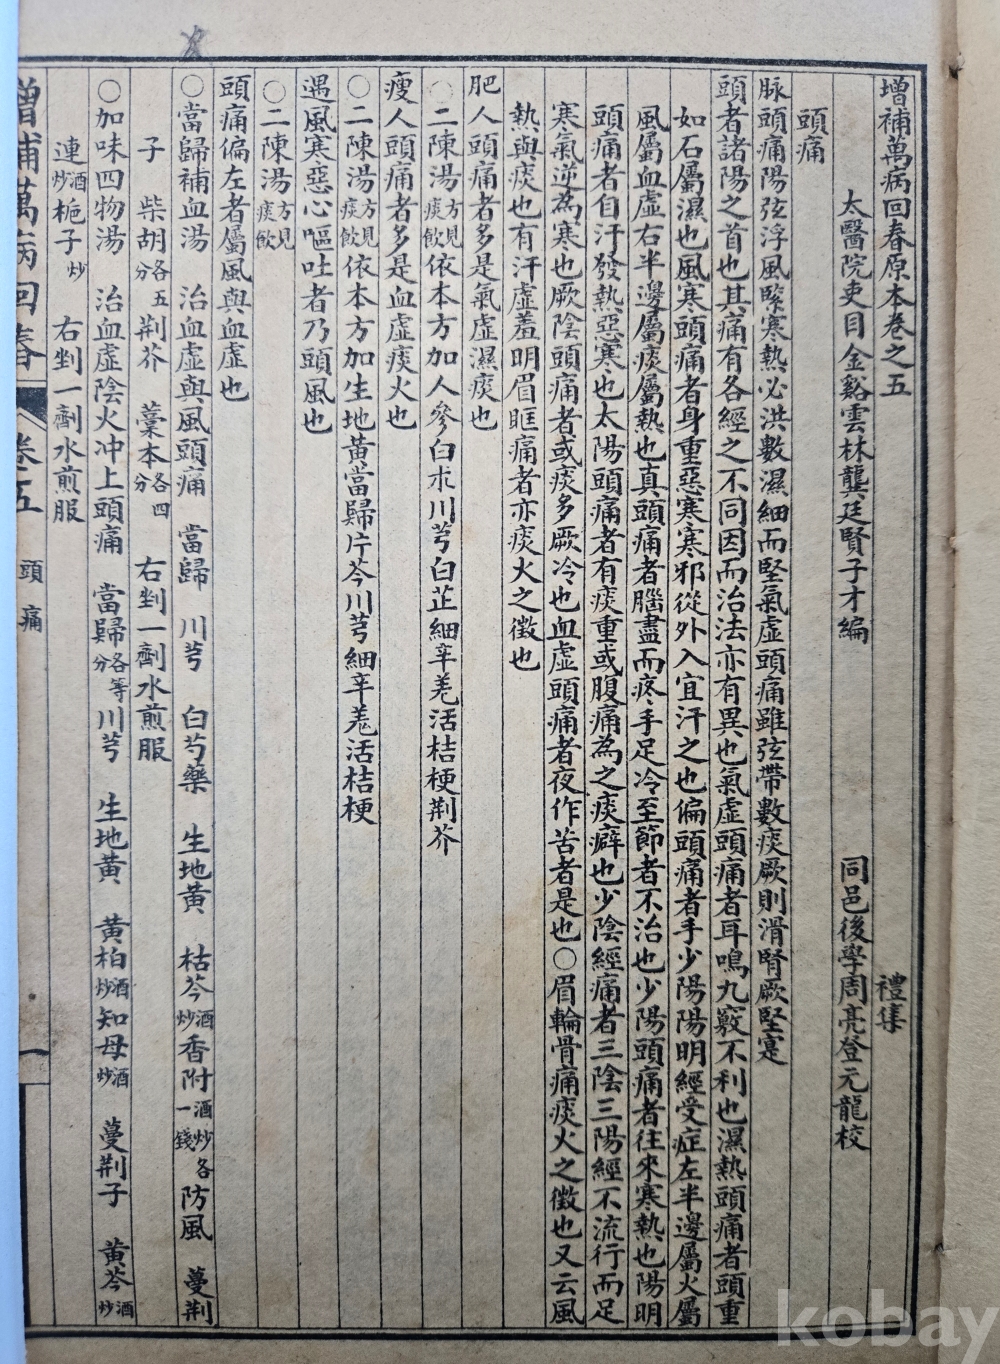 增補萬病回春原本卷之五 禮集
太醫院吏目金谿雲林龔廷賢子才編 同邑後學周亮登元龍校
頭痛
脉頭痛陽弦浮風緊寒熱必洪數濕細而堅氣虛頭痛雖弦帶數痰厥則滑腎厥堅寔
頭者諸陽之首也其痛有各經之不同因而治法亦有異也氣虛頭痛者耳鳴九竅不利也濕熱頭痛者頭重
如石屬濕也風寒頭痛者身重惡寒寒邪從外入宜汗之也偏頭痛者手少陽陽明經受症左半邊屬火屬
風屬血虛右半邊屬痰屬熱也真頭痛者腦盡而疼手足冷至節者不治也少陽頭痛者往來寒熱也陽明
頭痛者自汗發熱惡寒也太陽頭痛者有痰重或腹痛為之痰癖也少陰經痛者三陰三陽經不流行而足
寒氣逆為寒也厥陰頭痛者或痰多厥冷也血虛頭痛者夜作苦者是也○眉輪骨痛痰火之徵也又云風
熱與痰也有汗虛羞明眉眶痛者亦痰火之徵也
肥人頭痛者多是氣虛濕痰也
○二陳湯方見痰飲依本方加人參白朮川芎白芷細辛羌活桔梗荆芥
瘦人頭痛者多是血虛痰火也
○二陳湯方見痰飲依本方加生地黃當歸片芩川芎細辛羌活桔梗
遇風寒惡心嘔吐者乃頭風也
○二陳湯方見痰飲
頭痛偏左者屬風與血虛也
○當歸補血湯 治血虛與風頭痛 當歸 川芎 白芍藥 生地黃 枯芩酒炒香附酒炒各一錢防風 蔓荆
子 柴胡各五分荆芥 藁本各四分 右剉一劑水煎服
○加味四物湯 治血虛陰火冲上頭痛 當歸各等分川芎 生地黃 黃柏酒炒知母酒炒 蔓荆子 黃芩酒炒
連酒炒梔子炒 右剉一劑水煎服
增補萬病回春 卷五 頭痛 一
kobay